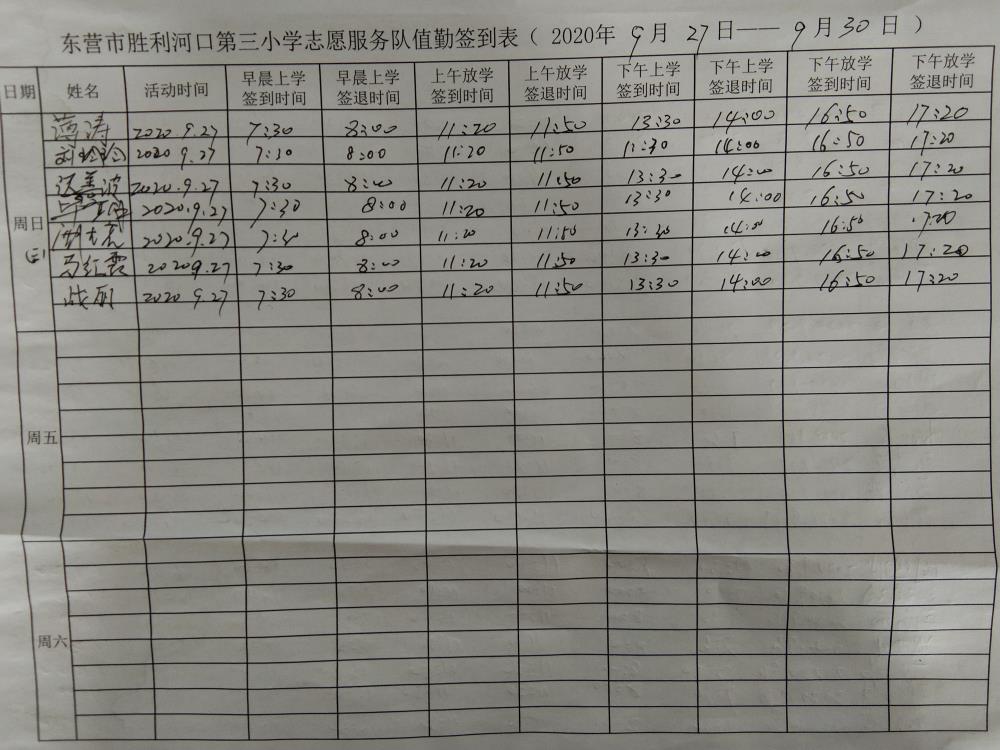 东营市胜利河口第三小学志愿服务队值勤签到表（ 2020年 9月 27日——9月30日 ）
日期 姓名 活动时间 早晨上学签到时间 早晨上学签退时间 上午放学签到时间 上午放学签退时间 下午上学签到时间 下午上学签退时间 下午放学签到时间 下午放学签退时间
涛 2020.9.27 7:30 8:00 11:20 11:50 13:30 14:00 16:50 17:20
刘玲玲 2020 9.27 7:30 8:00 11:20 11:50 13:30 14:00 16:50 17:20
善波 2020.9.27 7:30 8:00 11:20 11:50 13:30 14:00 16:50 17:20
周日 2020.9.27 7:30 8:00 11:20 11:50 13:30 14:00 16:50 17:20
2020.9.27 7:30 8:00 11:20 11:50 13:30 14:00 16:50 17:20
(三) 马红霞 2020 9.27 7:30 8:00 11:20 11:50 13:30 14:00 16:50 17:20
战丽 2020 9.27 7:30 8:00 11:20 11:50 13:30 14:00 16:50 17:20
周五
周六